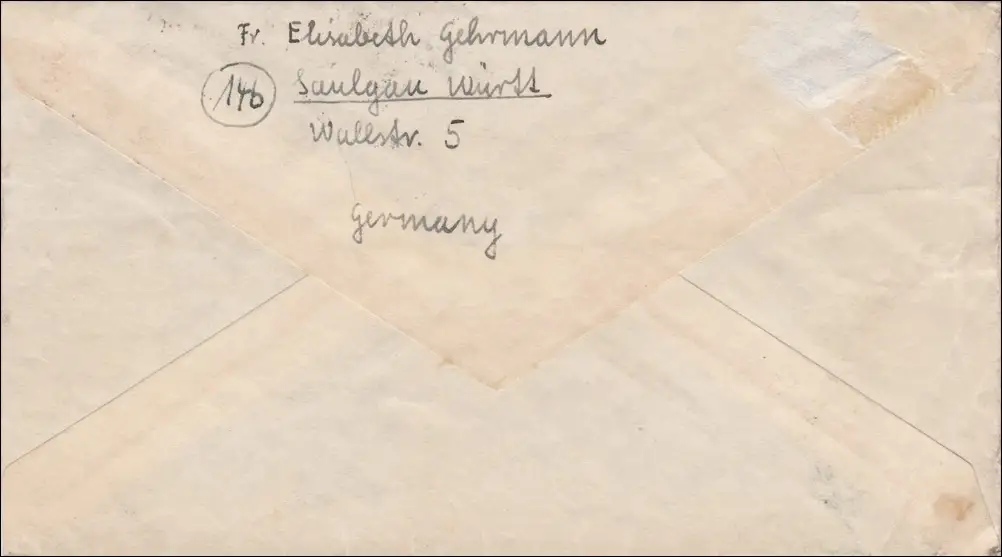 Fr. Elisabeth Gehrmann
14b Saulgau Württ
Wallstr. 5
Germany